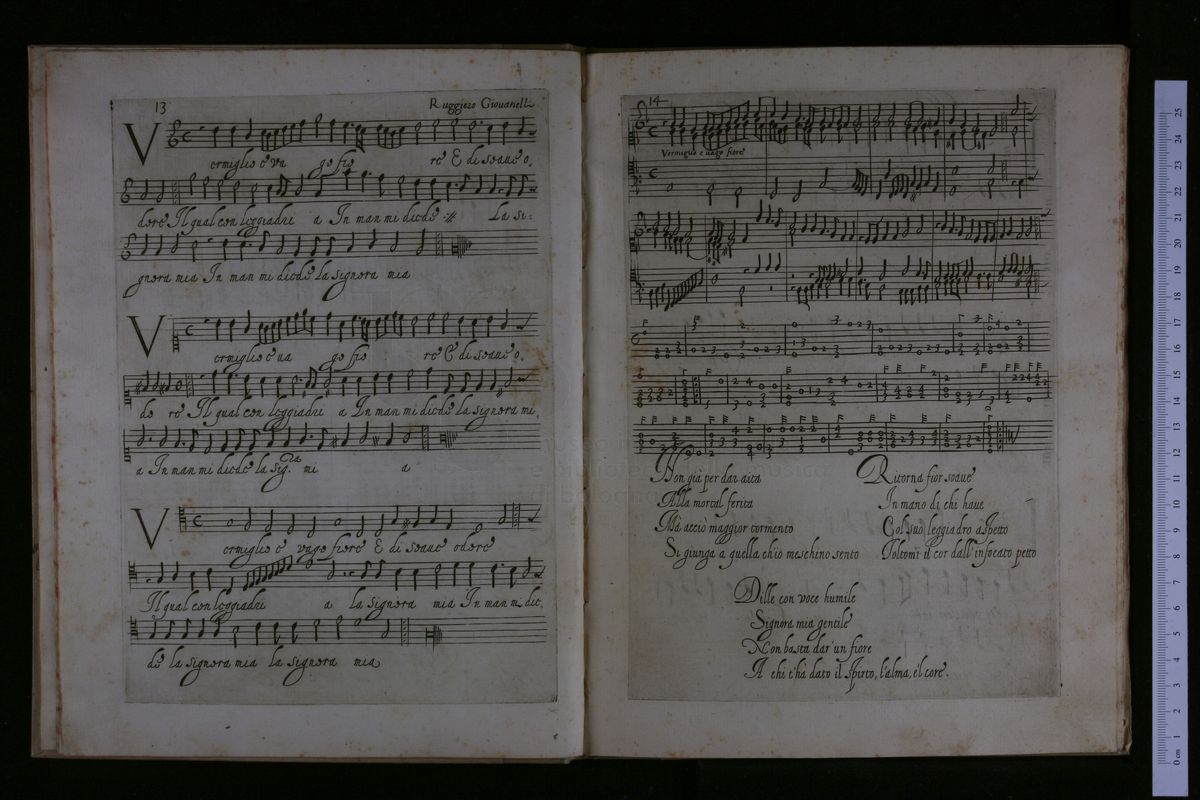 13 Ruggiero Giovanelli
Vermiglio e va go fio re E di soave o.
dore Il qual con leggiadri a In man mi diede La si:
gnora mia In man mi diede la signora mia
Vermiglio e va go fio re E di soave o.
do re Il qual con leggiadri a In man mi diede la signora mi
a In man mi diede la sig.ra mi a
Vermiglio e vago fiore E di soave odore
Il qual con leggiadri a la Signora mia In man mi die:
de la signora mia la signora mia
14
Vermiglio e vago fiore
Non già per dar aita
Alla mortal ferita
Ma acciò maggior tormento
Si giunga a quella ch'io meschino sento
Ritorna fior soave
In mano di chi have
Col suo leggiadro aspetto
Toltomi il cor dall'infocato petto
Dille con voce humile
Signora mia gentile
Non basta dar un fiore
A chi t'ha dato il spirto, l'alma, e'l core.
0 cm 1 2 3 4 5 6 7 8 9 10 11 12 13 14 15 16 17 18 19 20 21 22 23 24 25